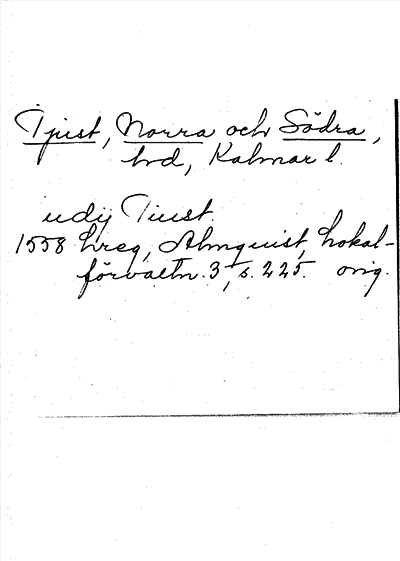 Tjust, Norra och Södra,
hd, Kalmar l.
udij Tiust.
1558 hreg, Almquist, Lokal-
förvaltn. 3, s. 225. orig.